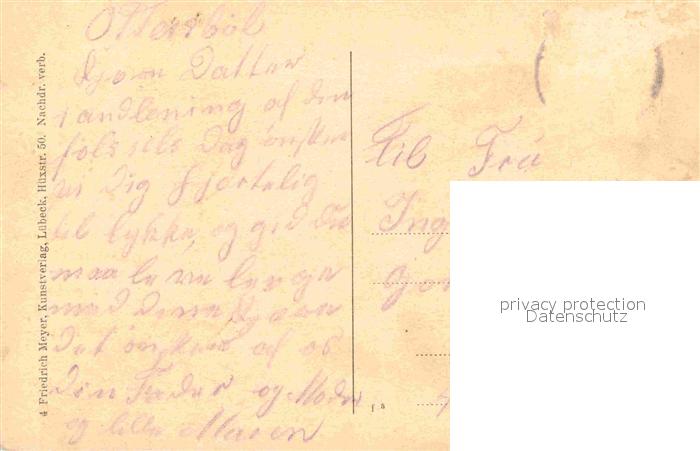 Otterböl
Kjære Datter
i andlening af din
föls sels Dag önsker
vi Dig hjertelig
til lykke, og gid du
maa leve lenge
med dine Kjære
det önskes af os
din Fader og Moder
og lille Maren
Til Frü
Ing
4 Friedrich Meyer, Kunstverlag, Lübeck, Hüxstr. 50. Nachdr. verb.
privacy protection
Datenschutz